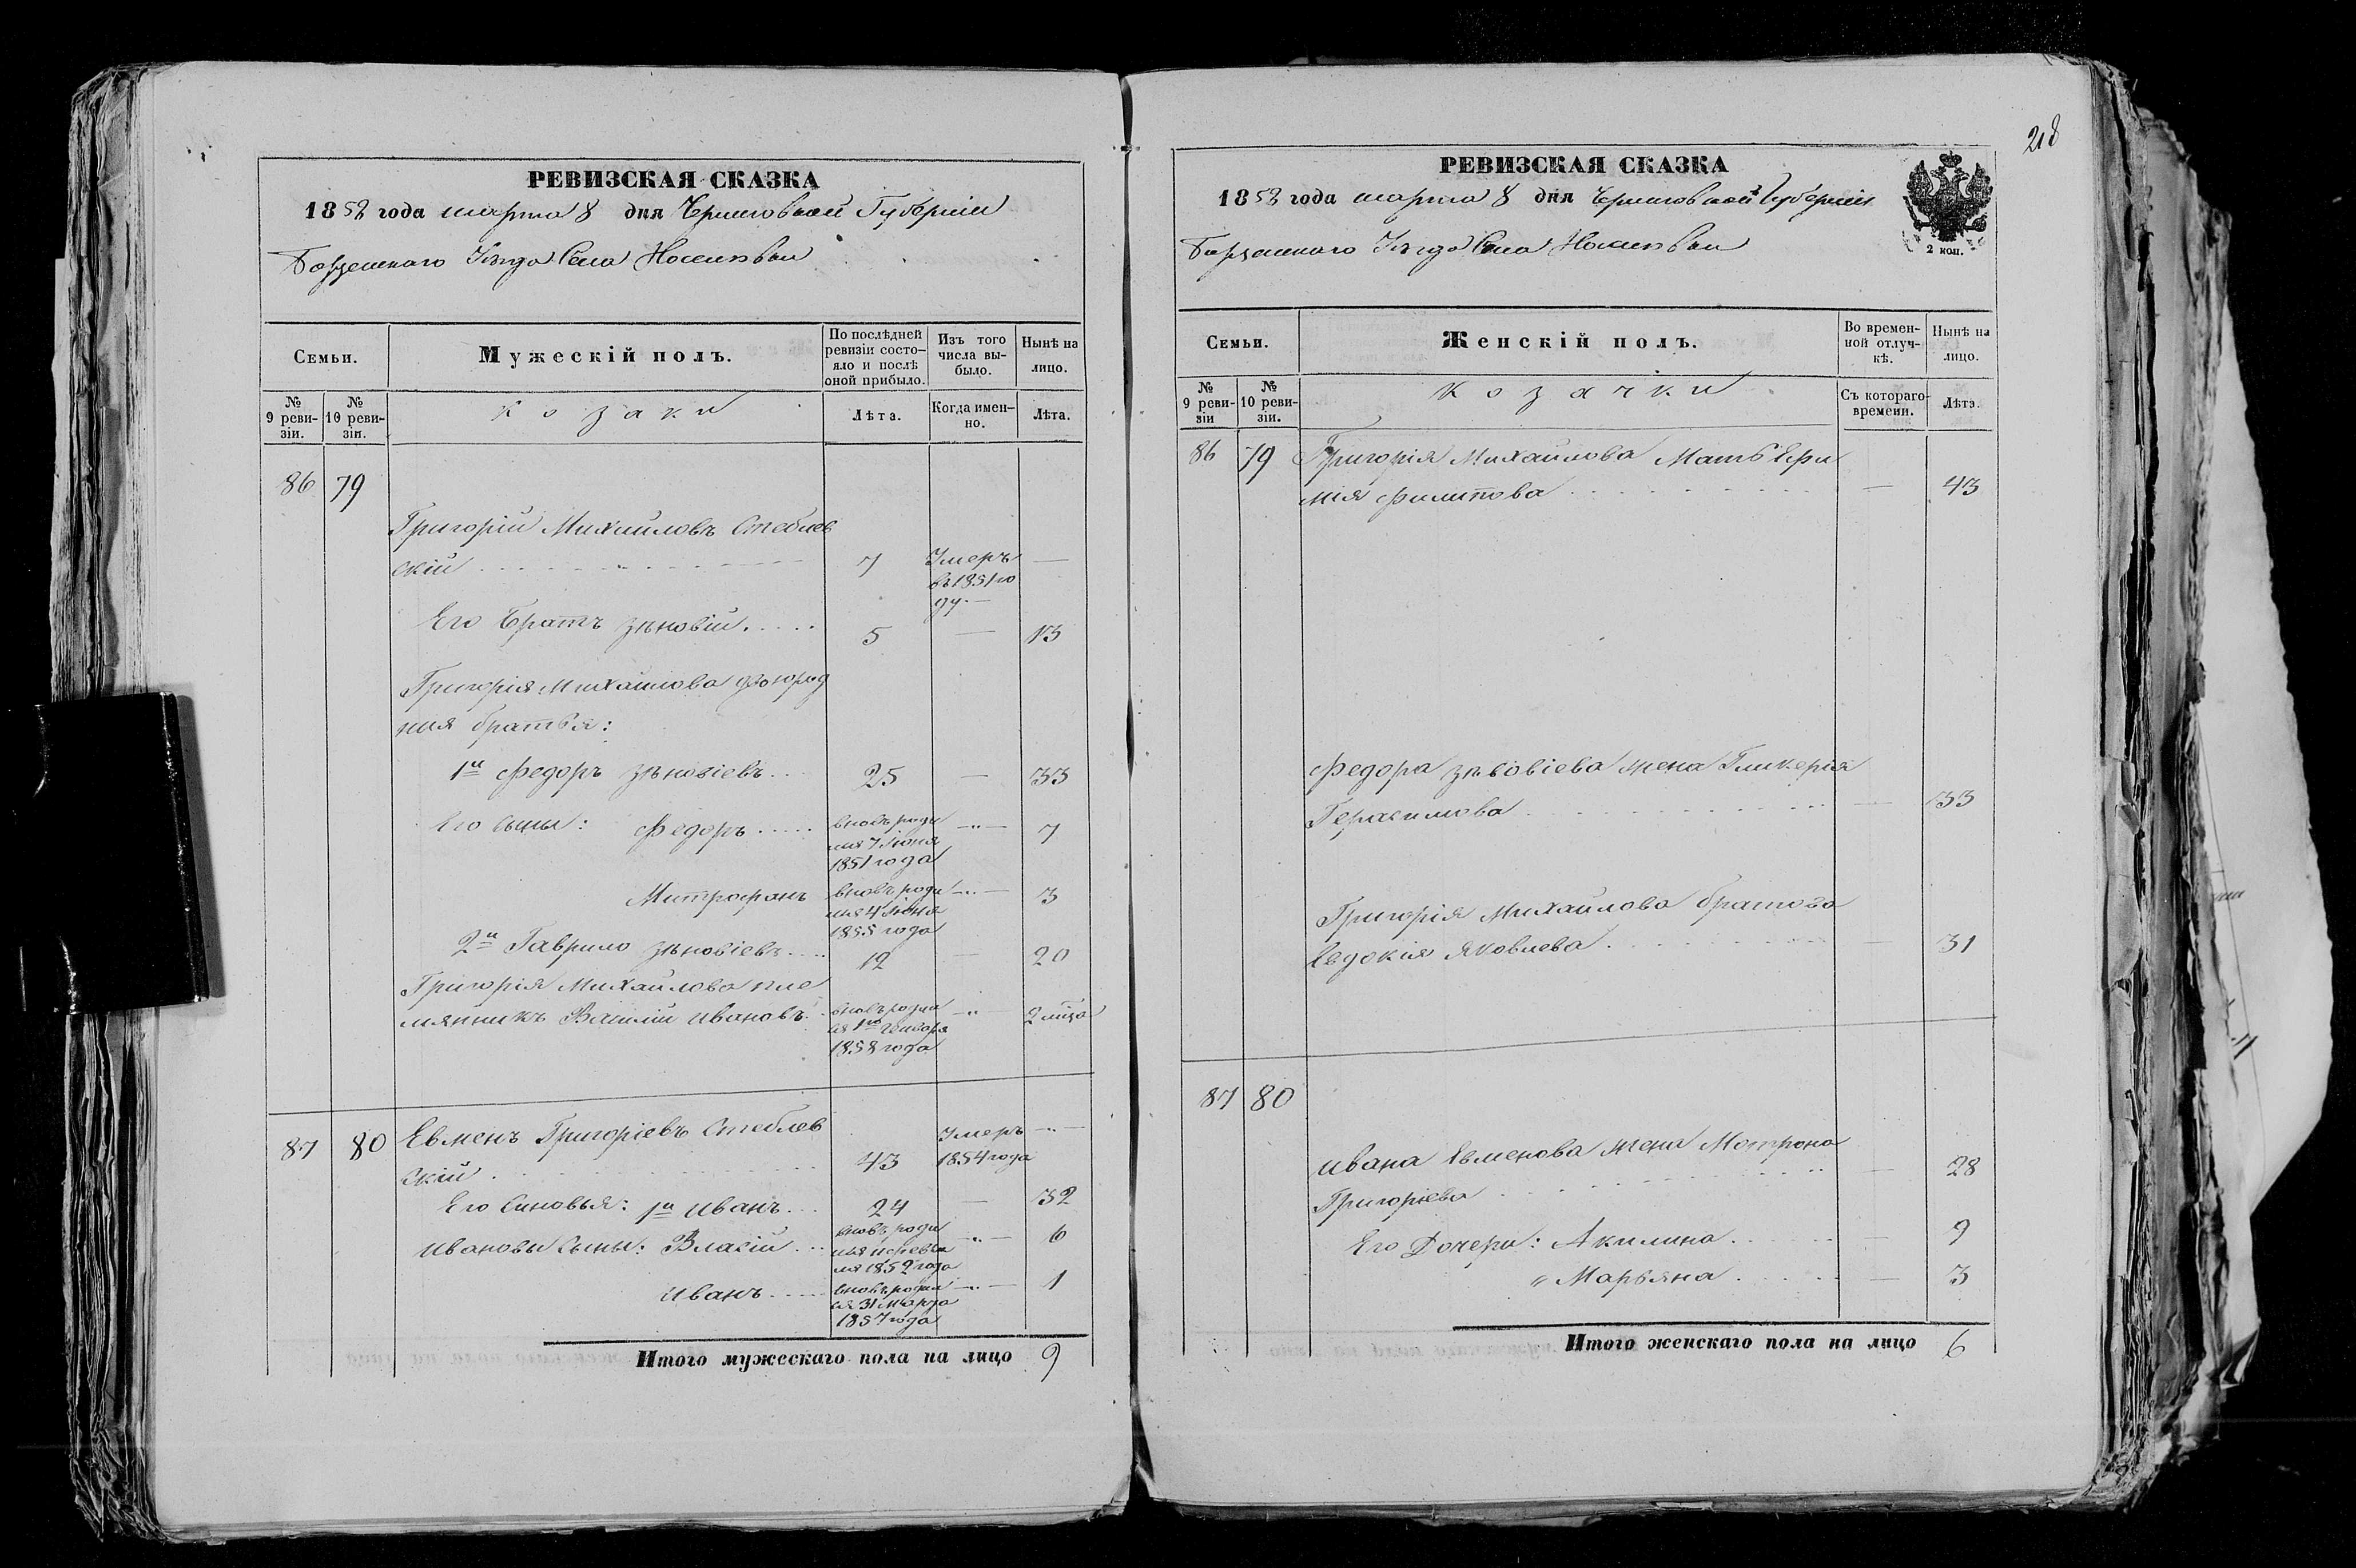 РЕВИЗСКАЯ СКАЗКА
1858 года марта 8 дня Черниговской Губерніи
Борзенского Уезда Села Носелевки
Семьи.
Мужескій полъ.
По послѣдней ревизіи состо-
яло и послѣ
оной прибыло.
Изъ того
числа вы-
было.
Нынѣ на
лицо.
№
9 реви-
зіи.
№
10 реви-
зіи.
козаки
Лѣта.
Когда имен-
но.
Лѣта.
86 79
Григорій Михайловъ Стеблев
скій 7 Умеръ —
въ 1851 го
ду. —
Его Братъ Зѣновій 5 — 13
Григорія Михайлова двоюрод
ния братья:
1й Федоръ Зѣновіевъ 25 — 33
Его сыны: Федоръ вновь роди — 7
лся 7 Іюня
1851 года
Митрофанъ вновь роди — 3
лся 4 Іюня
1855 года
2й Гаврило Зѣновіевъ 12 — 20
Григорія Михайлова пле
мянникъ Василій Ивановъ вновь родил — 2 мѣсяца
ся 1го Генваря
1858 года
87 80 Евменъ Григоріевъ Стеблев Умеръ —
скій 43 1854 года
Его Синовья: 1й Иванъ 24 — 32
Ивановы Сыны: Власій вновь роди — 6
лся
1852 года
Иванъ вновь родил — 1
ся 31 марта
1857 года
Итого мужескаго пола на лицо 9
218
РЕВИЗСКАЯ СКАЗКА
1858 года марта 8 дня Черниговской Губерніи
Борзенского Уезда Села Носелевки
2 коп.
Семьи.
Женскій полъ.
Во времен-
ной отлуч-
кѣ.
Нынѣ на
лицо.
№
9 реви-
зіи
№
10 реви-
зіи.
козачки
Съ котораго
времени.
Лѣта.
86 79 Григорія Михайлова Мать Ефи
мія Филипова — 43
Федора Зѣновіева жена Гликерія
Герасимова — 33
Григорія Михайлова братова
Евдокія Яковлева — 31
87 80
Ивана Евменова жена Мотрона
Григоріева — 28
Его Дочери: Акилина 9
" Марьяна — 3
Итого женскаго пола на лицо 6